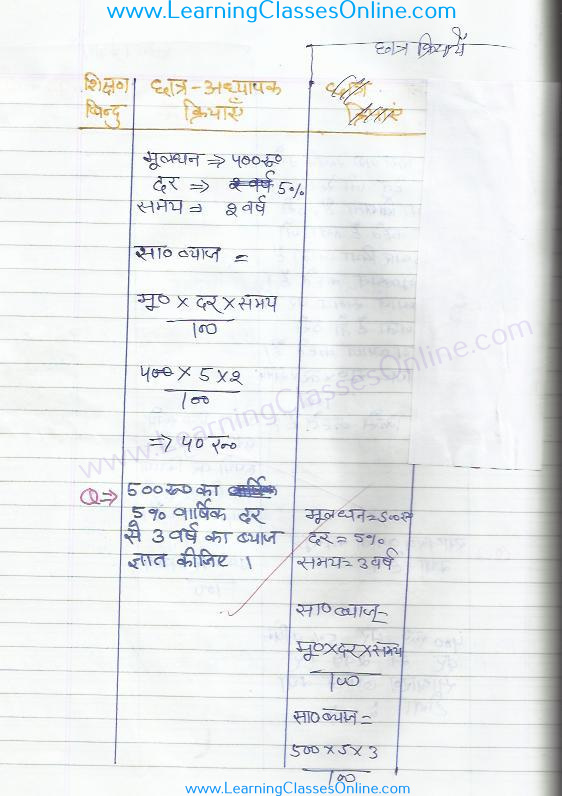 www.LearningClassesOnline.com
छात्र क्रियायें
शिक्षण बिन्दु
छात्र - अध्यापक क्रियाएँ
मूलधन ⇒ ४००रु०
दर ⇒ 5%
समय = २ वर्ष
सा० ब्याज =
मू० × दर × समय
100
४०० × 5 × २
100
⇒ ४० रु०
Q ⇒ 500 रु० का
5% वार्षिक दर
से 3 वर्ष का ब्याज
ज्ञात कीजिए ।
मूलधन = 500रु
दर = 5%
समय = 3 वर्ष
सा० ब्याज =
मू० × दर × समय
100
सा० ब्याज =
500 × 5 × 3
100
www.LearningClassesOnline.com
www.LearningClassesOnline.com